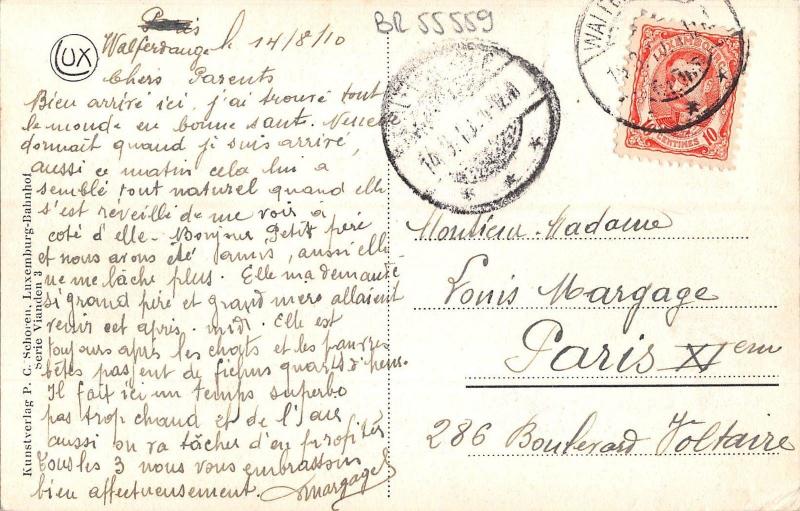 BR 55559
LUX
Paris
Walferdange le 14/8/10
Chers Parents
Bien arrivé ici, j'ai trouvé tout
le monde en bonne santé.
dormait quand je suis arrivé,
aussi ce matin cela lui a
semblé tout naturel quand elle
s'est réveillé de me voir à
coté d'elle. Bonjour Petit père
et nous avons été amis, aussi elle
ne me lâche plus. Elle m'a demandé
si grand père et grand mère allaient
venir cet après-midi. Elle est
toujours après les chats et les pauvres
bêtes passent de fichus quarts d'heure.
Il fait ici un temps superbe
pas trop chaud et de l'air
aussi on va tâcher d'en profiter
Tous les 3 nous vous embrassons
bien affectueusement. Lmargage
Kunstverlag P. C. Schoren, Luxemburg-Bahnhof
Serie Vianden 3
LUXEMBOURG
10
CENTIMES
Monsieur Madame
Louis Margage
Paris XI em
286 Boulevard Voltaire